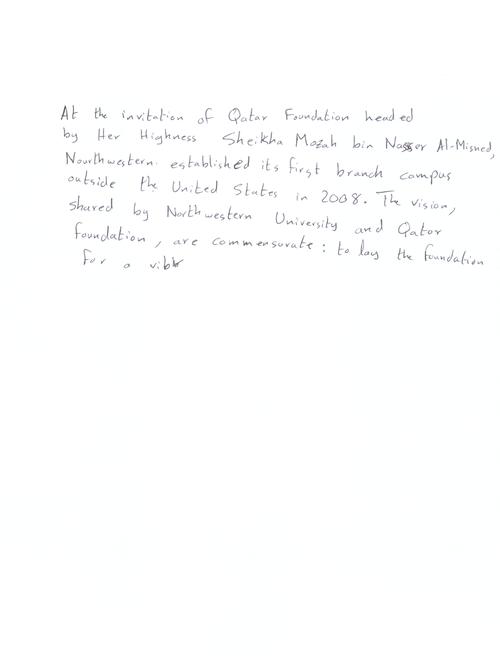 At the invitation of Qatar Foundation headed
by Her Highness Sheikha Mozah bin Nasser Al-Misned,
Nourthwestern. established its first branch campus
outside the United States in 2008. The vision,
shared by Northwestern University and Qatar
foundation, are commensurate: to lay the foundation
for a